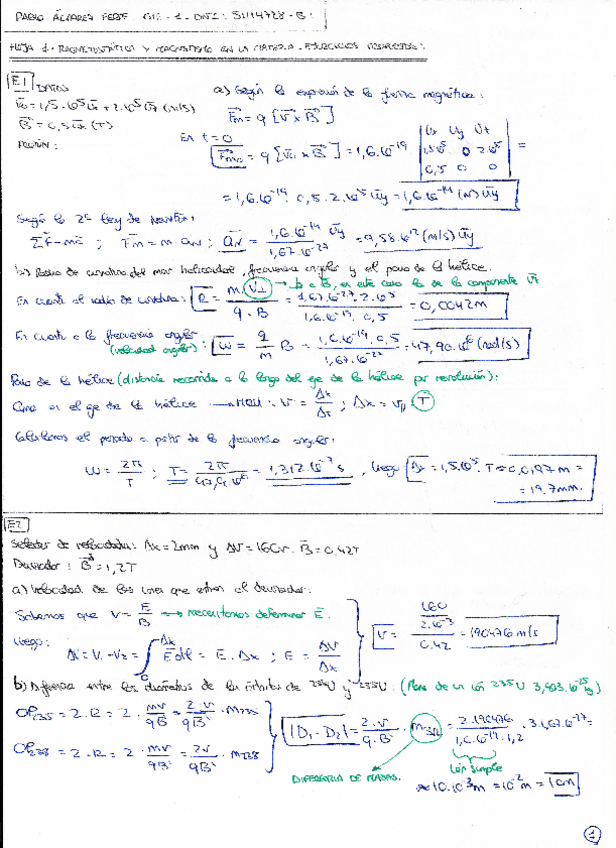 PABLO ÁLVAREZ
HOJA 1 - MAGNETOSTÁTICA Y MAGNETISMO EN LA MATERIA - EJERCICIOS
E.1 DATOS
V₀ = 1,5·10⁵ Ux + 2·10⁵ Uz (m/s)
B = 0,5 Ux (T)
a) Según la expresión de la fuerza magnética:
Fm = q [V x B]
En t = 0
= q [V x B] = 1,6·10⁻¹⁹ | Ux Uy Uz | 1,5·10⁵ 0 2·10⁵ | 0,5 0 0 | =
= 1,6·10⁻¹⁹ · 0,5 · 2·10⁵ Uy = 1,6·10⁻¹⁴ (N) Uy
Según la 2ª ley de Newton:
ΣF = ma ; Fm = m aN ; aN = 1,6·10⁻¹⁴ Uy / 1,67·10⁻²⁷ = 9,58·10¹² (m/s) Uy
b) Radio de curvatura del mov helicoidal, frecuencia angular y el paso de la hélice.
En cuanto al radio de curvatura: R = m · V⊥ / q · B = 1,67·10⁻²⁷ · 2·10⁵ / 1,6·10⁻¹⁹ · 0,5 = 0,0042 m
⊥ a B, en este caso la de la componente
En cuanto a la frecuencia angular (velocidad angular): W = q/m B = 1,6·10⁻¹⁹ · 0,5 / 1,67·10⁻²⁷ = 47,90·10⁶ (rad/s)
Paso de la hélice (distancia recorrida a lo largo del eje de la hélice por revolución):
en el eje de la hélice → MRU: V = Δx/Δt ; Δx = V∥ · T
Calculamos el periodo a partir de la frecuencia angular:
W = 2π/T ; T = 2π / 47,9·10⁶ = 1,312·10⁻⁷ s , luego Δx = 1,5·10⁵ · T = 0,0197 m =
= 19,7 mm.
E2
Selector de velocidades: Δx = 2mm y ΔV = 160V. B = 0,42T
Desviador: B' = 1,2T
a) Velocidad de los iones que entran al desviador:
Sabemos que V = E/B → necesitamos determinar E.
Luego:
ΔV = V₁ - V₂ = ∫₀^Δx E dl = E · Δx ; E = ΔV/Δx
V = 160 / 2·10⁻³ / 0,42 = 190476 m/s
b) Diferencia entre los diámetros de las órbitas de ²³⁸U y ²³⁵U. (Masa de un ión 235U 3,903·10⁻²⁵ kg)
= 2·R = 2 · mv / qB' = 2·v / qB' · m235
= 2·R = 2 · mv / qB' = 2v / qB' · m238
|D₁ - D₂| = 2·v / q·B' · = 2·190476 / 1,6·10⁻¹⁹ · 1,2 · 3·1,67·10⁻²⁷ =
DIFERENCIA DE MASAS.
ión simple
≈ 10·10⁻³ m = 10⁻² m = 1 cm
1